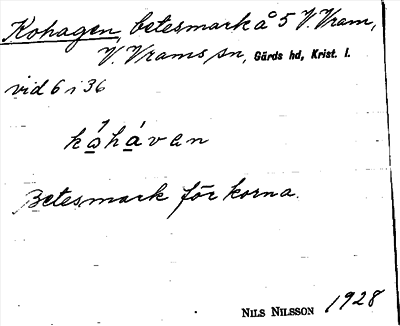 Kohagen, betesmark å 5 V. Vram,
V. Vrams sn, Gärds hd, Krist. l.
vid 6 i 36
kǻhávan
Betesmark för korna.
NILS NILSSON 1928